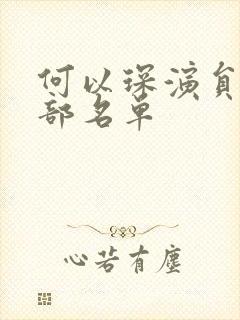 何以琛演員
部名單
心若有塵